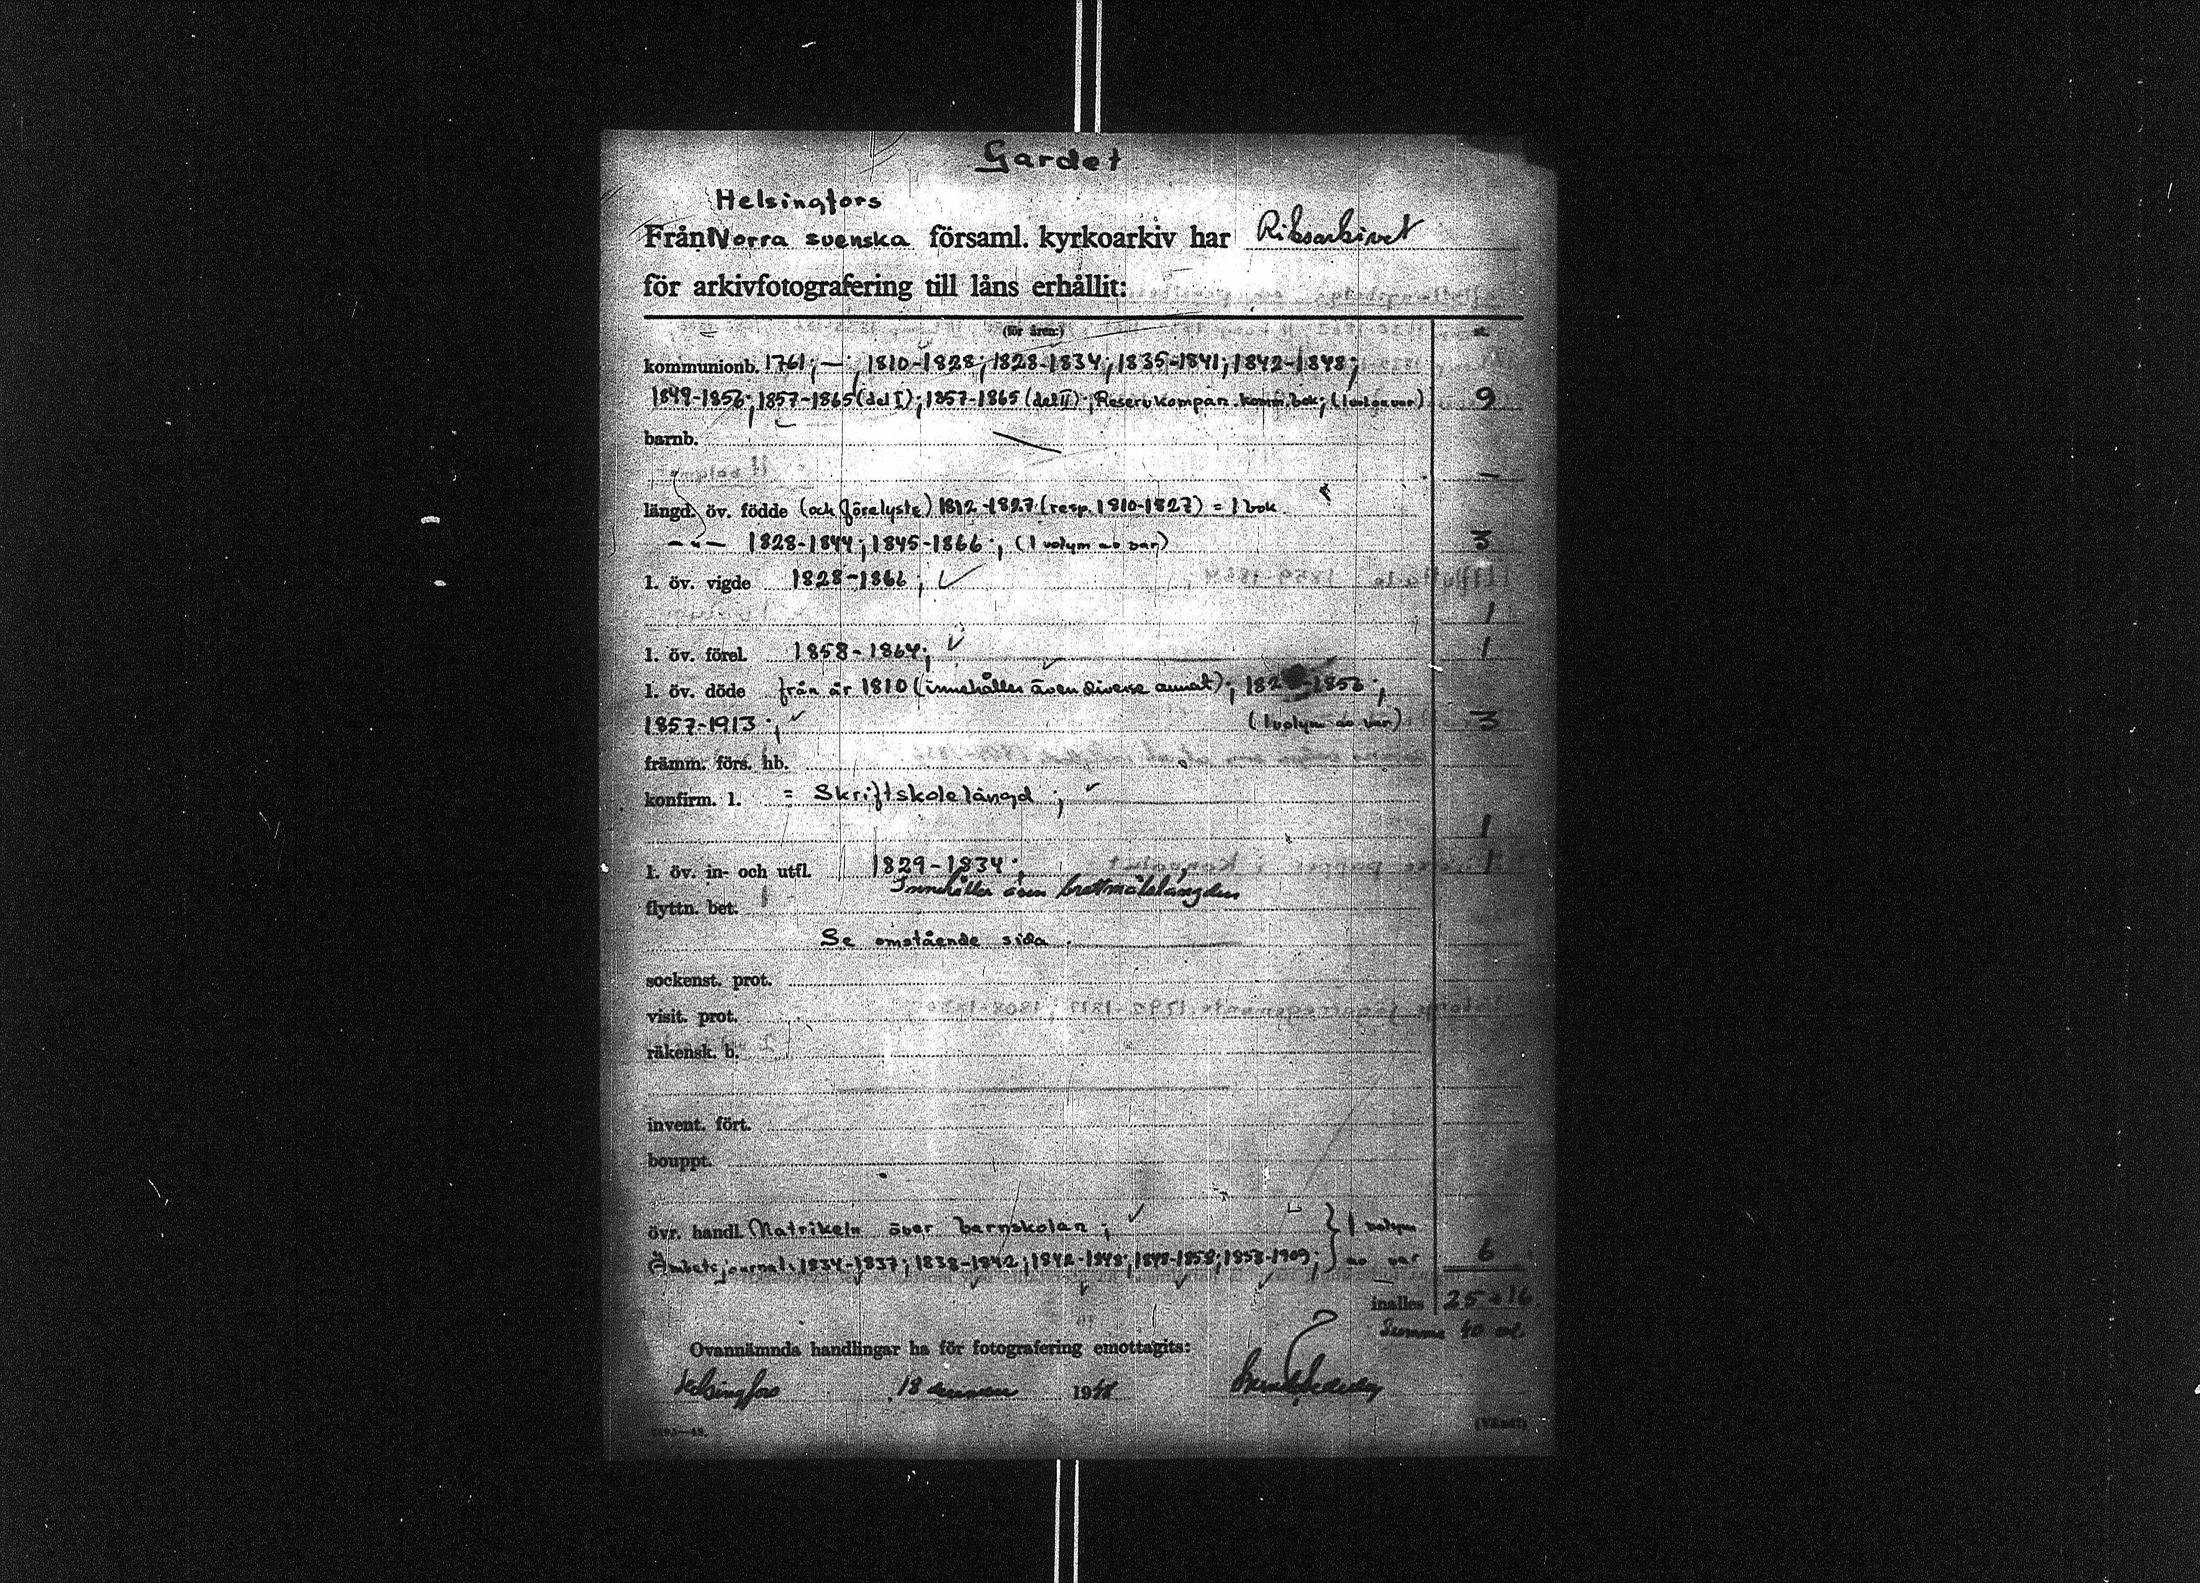 Gardet
Helsingfors
Från Norra svenska församl. kyrkoarkiv har Riksarkivet
för arkivfotografering till låns erhållit:
(för åren:) st.
kommunionb. 1761; — ; 1810-1828; 1828-1834; 1835-1841; 1842-1848;
1849-1856; 1857-1865 (del I); 1857-1865 (del II); Reservkompan. komm. bok; (1 volym var) 9
barnb.
—
längd. öv. födde (och förelyste) 1812-1827 (resp. 1810-1827) = 1 bok
— " — 1828-1844; 1845-1866; (1 volym av var) 3
l. öv. vigde 1828-1866;
1
l. öv. förel. 1858-1864; 1
l. öv. döde från år 1810 (innehåller även diverse annat); 1856;
1857-1913; (1 volym av var) 3
främm. förs. hb.
konfirm. l. = Skriftskolelängd;
1
l. öv. in- och utfl. 1829-1834; 1
Innehåller även brottmålslängden
flyttn. bet.
Se omstående sida.
sockenst. prot.
visit. prot.
räkensk. b.
invent. fört.
bouppt.
övr. handl. Matrikeln över barnskolan; } 1 volym
Ämbetsjournal: 1834-1837; 1838-1842; 1842-1848; 1848-1858; 1858-1909; } av var 6
inalles 25+16
Summa 40 vol.
Ovannämnda handlingar ha för fotografering emottagits:
Helsingfors 18 1948
(Vänd!)